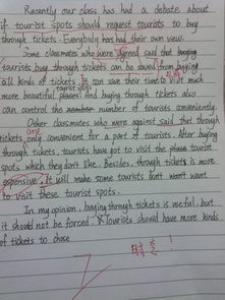 Recently our class has had a debate about
if tourist spots should request tourists to buy
through tickets. Everybody has had their own view.
Some classmates who were agreed said that buying
tourists buy through tickets can be saved from buying
all kinds of tickets. It can save their time to visit much
more beautiful places and buying through tickets also
tourist spots
can control the number of tourists conveniently.
Other classmates who were against said that through
tickets only convenient for a part of tourists. After buying
are
through tickets, tourists have got to visit the tourist
spots which they don't like. Besides, through tickets is more
expensive. It will make some tourists don't want
to visit these tourist spots.
In my opinion, buying through tickets is useful, but
it should not be forced. Tourists should have more kinds
of tickets to chose